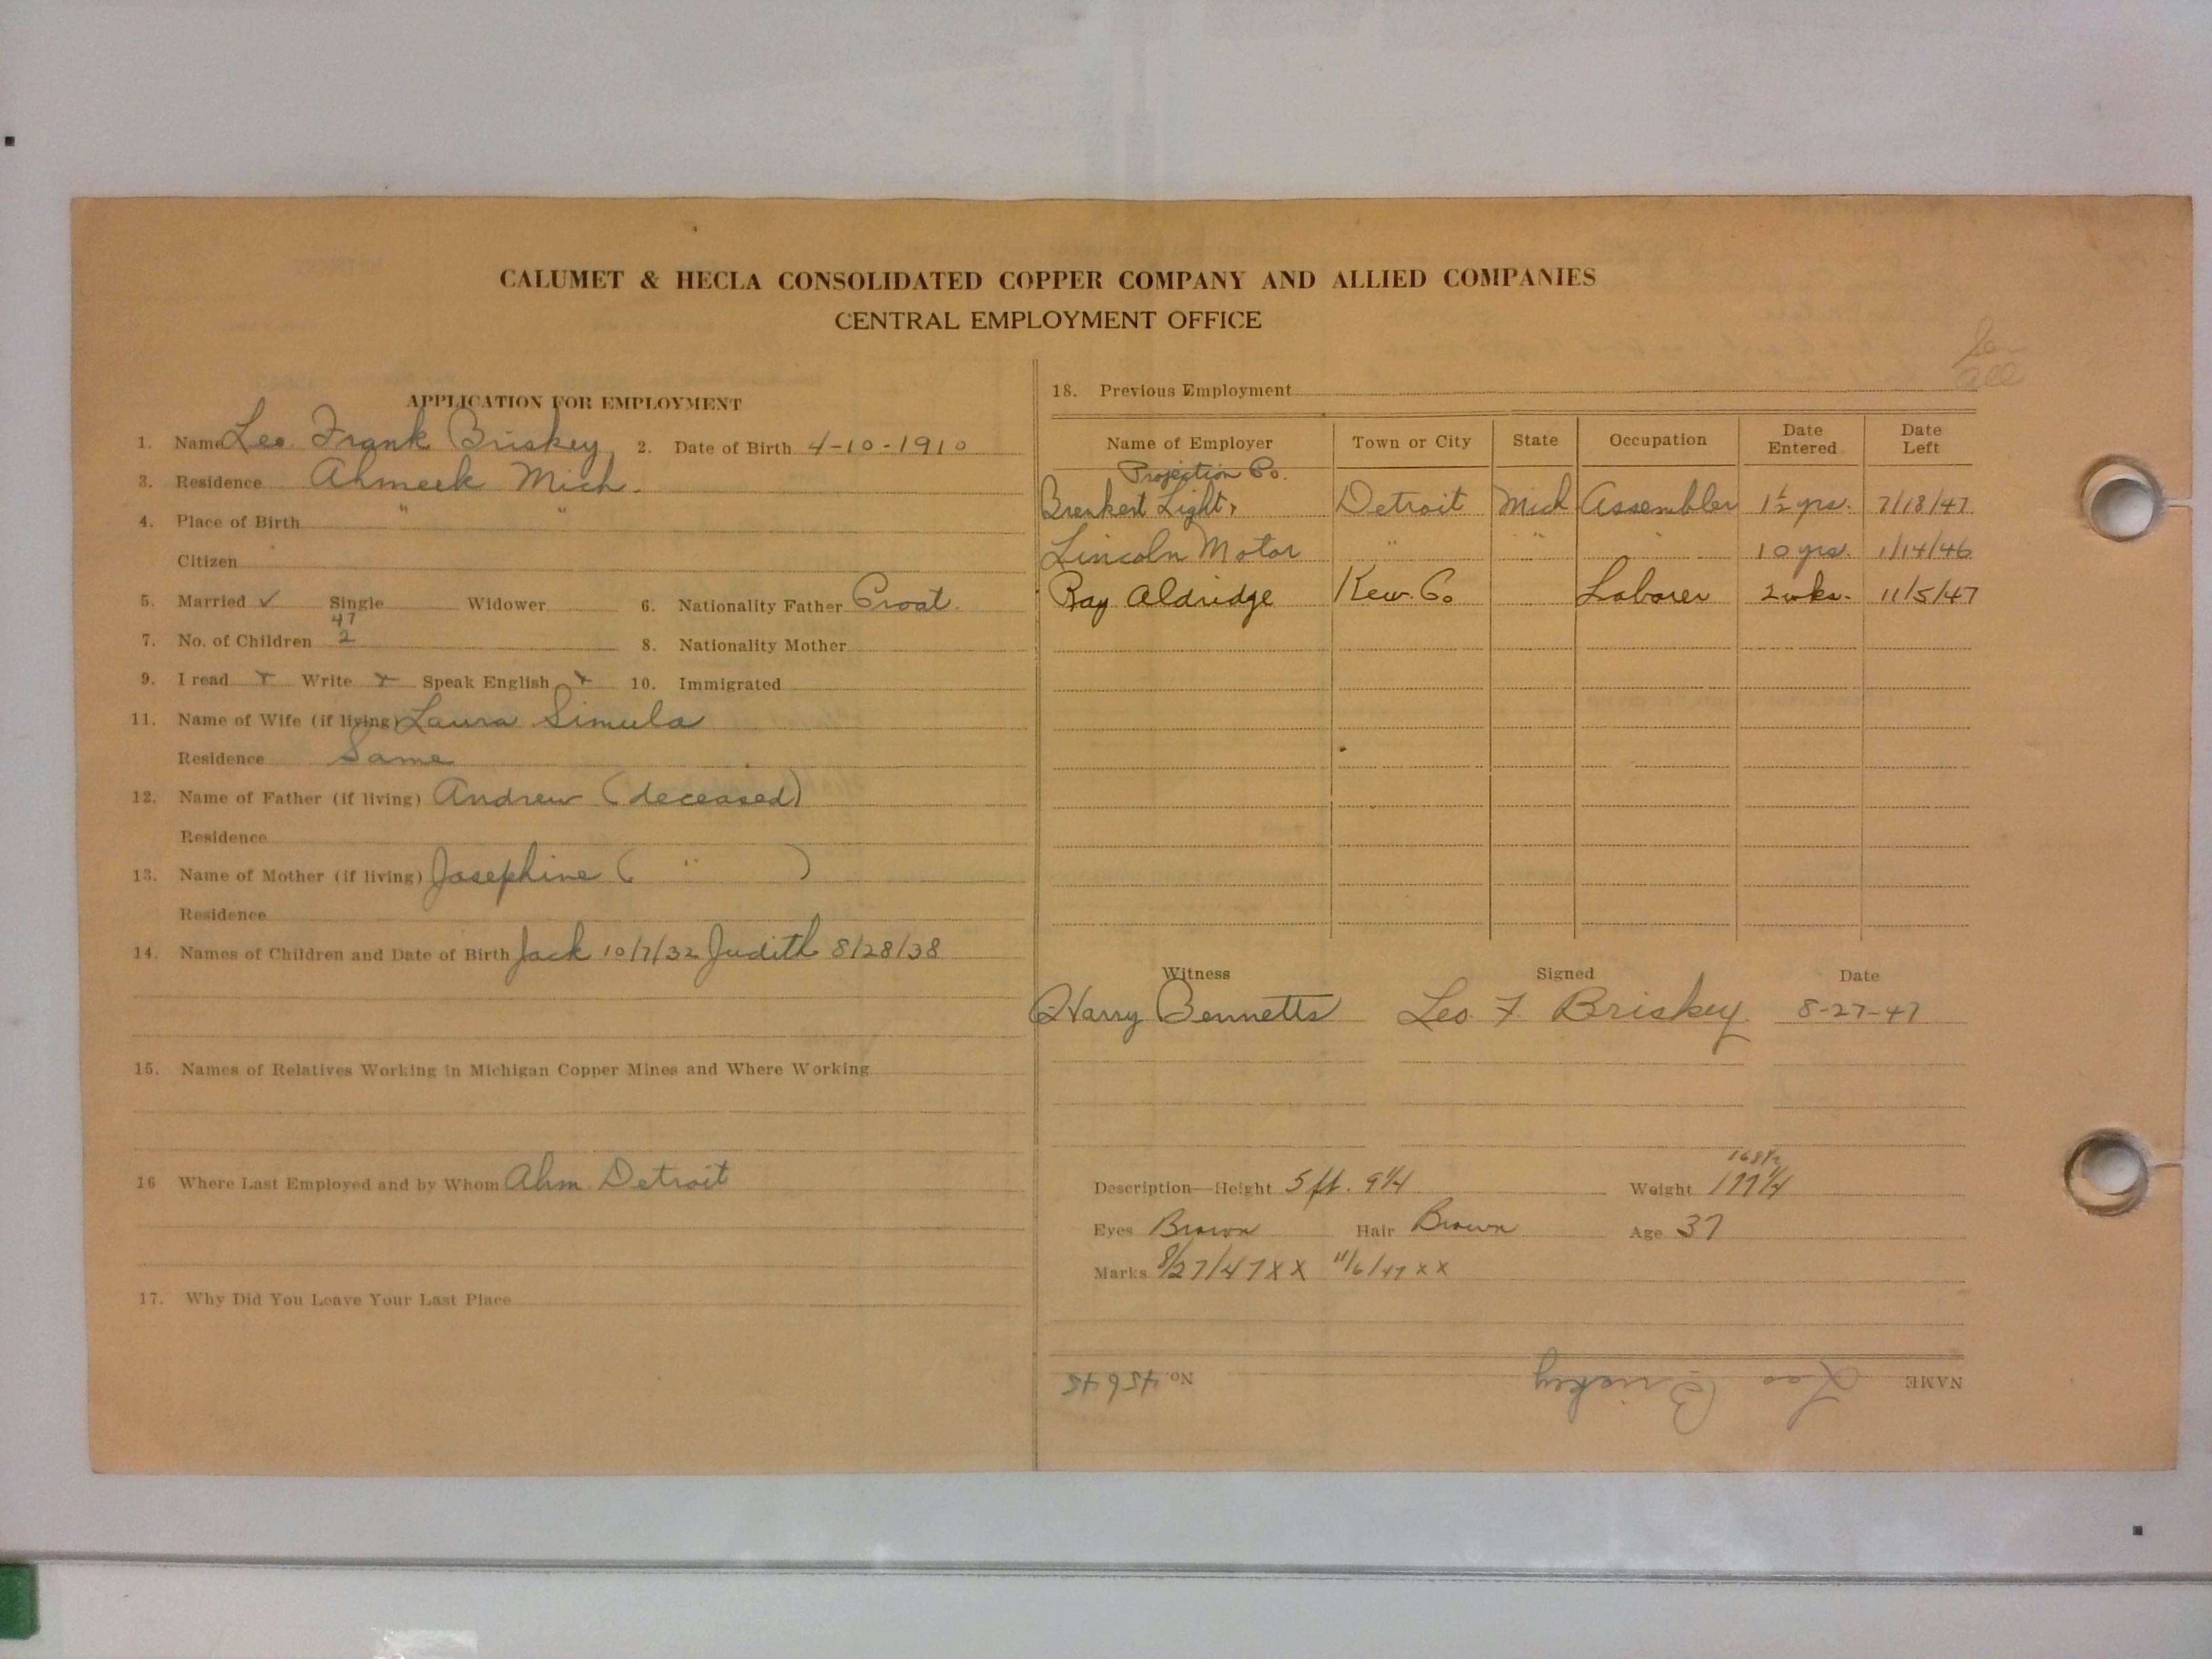 CALUMET & HECLA CONSOLIDATED COPPER COMPANY AND ALLIED COMPANIES
CENTRAL EMPLOYMENT OFFICE
APPLICATION FOR EMPLOYMENT
1. Name Leo Frank Briskey 2. Date of Birth 4-10-1910
3. Residence Ahmeek Mich.
4. Place of Birth " "
Citizen
5. Married ✓ Single Widower 6. Nationality Father Croat
47
7. No. of Children 2 8. Nationality Mother
9. I read x Write x Speak English x 10. Immigrated
11. Name of Wife (if living) Laura Simula
Residence Same
12. Name of Father (if living) Andrew (deceased)
Residence
13. Name of Mother (if living) Josephine ( " )
Residence
14. Names of Children and Date of Birth Jack 10/7/32 Judith 8/28/38
15. Names of Relatives Working in Michigan Copper Mines and Where Working
16 Where Last Employed and by Whom Ahm Detroit
17. Why Did You Leave Your Last Place
18. Previous Employment
Name of Employer Town or City State Occupation Date Entered Date Left
Projection Co.
Brenkert Light, Detroit Mich Assembler 1½ yrs. 7/18/47
Lincoln Motor " " " 10 yrs. 1/14/46
Ray Aldridge Kew. Co Laborer 2 wks. 11/5/47
Witness Signed Date
Harry Bennetts Leo F. Briskey. 8-27-47
168½
Description—Height 5 ft. 9¼ Weight 177¼
Eyes Brown Hair Brown Age 37
Marks 8/27/47 X X 11/6/47 x x
NAME Leo Briskey No. 45645